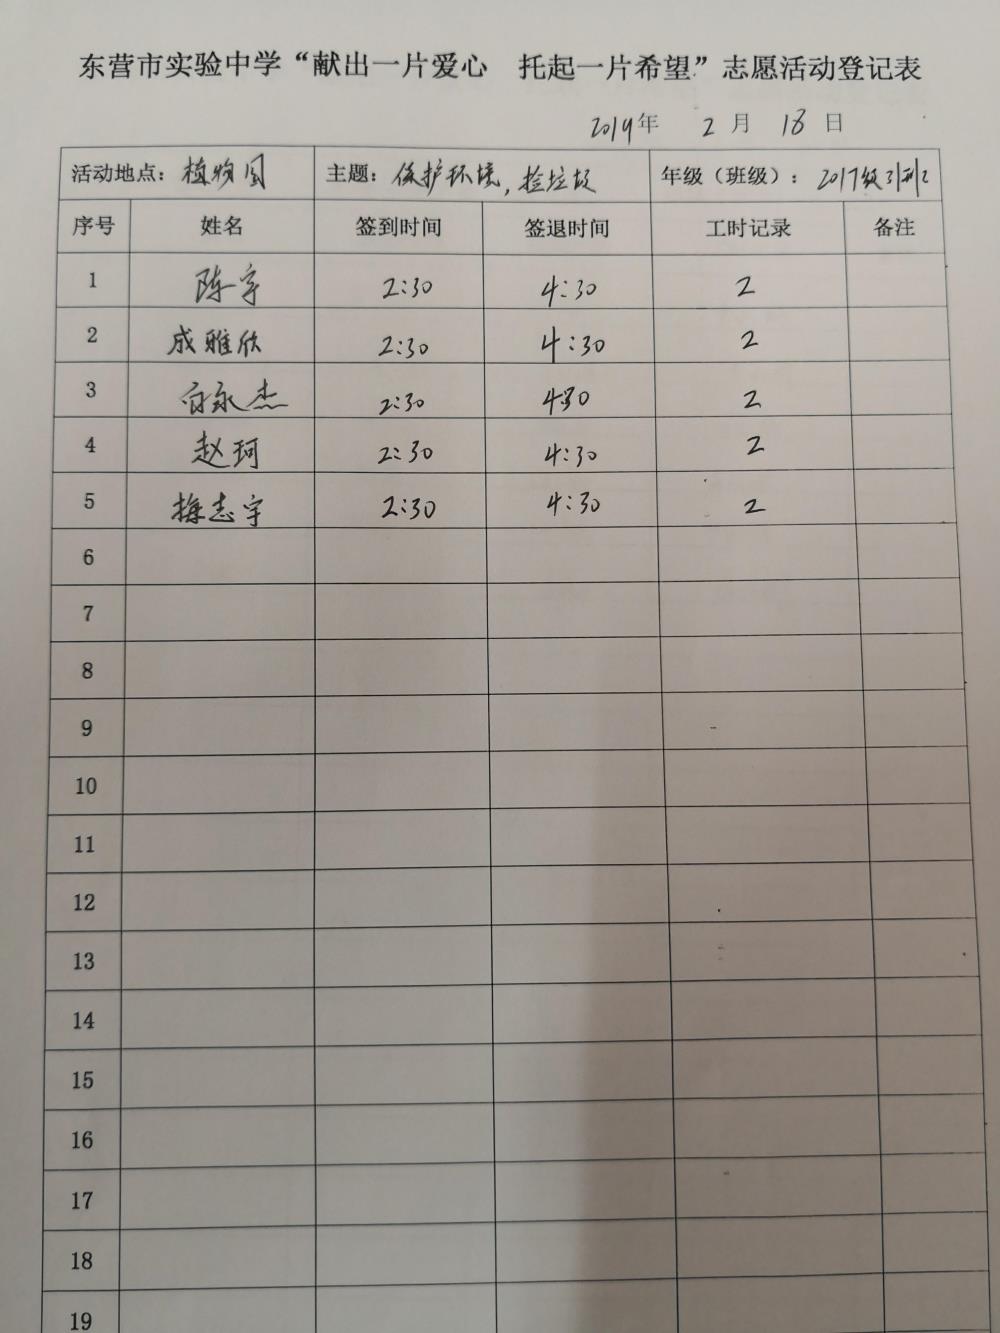 东营市实验中学“献出一片爱心 托起一片希望”志愿活动登记表
2019年 2月 18日
活动地点：植物园 主题：保护环境，捡垃圾 年级（班级）：2017级
序号 姓名 签到时间 签退时间 工时记录 备注
1 陈宇 2:30 4:30 2
2 成雅欣 2:30 4:30 2
3 永杰 2:30 4:30 2
4 赵珂 2:30 4:30 2
5 志宇 2:30 4:30 2
6
7
8
9
10
11
12
13
14
15
16
17
18
19